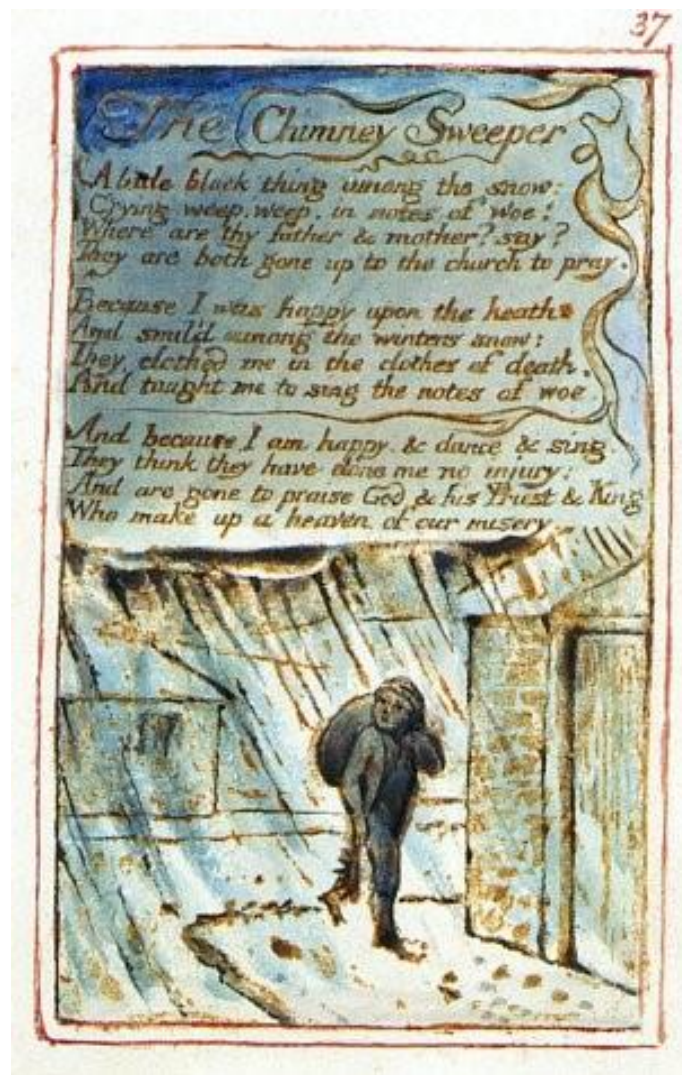 37
The Chimney Sweeper
A little black thing among the snow:
Crying weep, weep, in notes of woe!
Where are thy father & mother? say?
They are both gone up to the church to pray.
Because I was happy upon the heath,
And smil'd among the winters snow:
They clothed me in the clothes of death,
And taught me to sing the notes of woe.
And because I am happy, & dance & sing,
They think they have done me no injury:
And are gone to praise God & his Priest & King
Who make up a heaven of our misery.